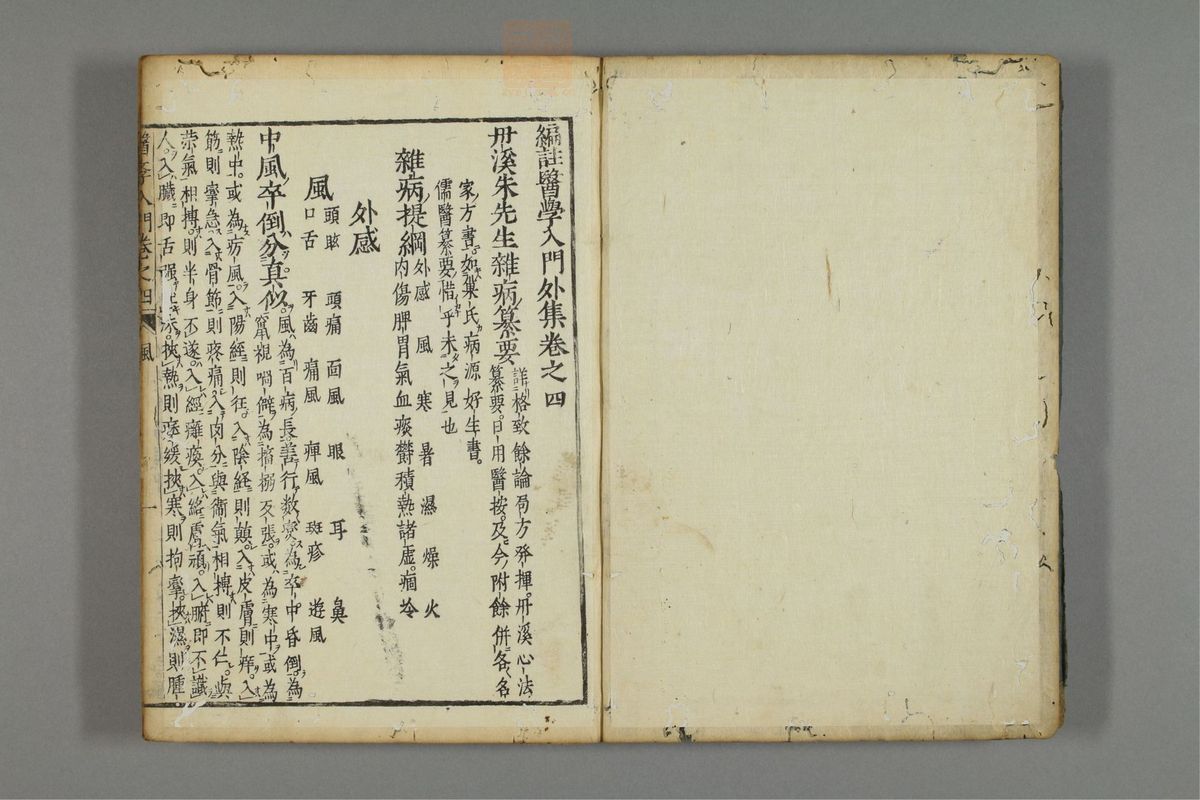 編註醫學入門外集卷之四
丹溪朱先生雜病纂要
詳格致餘論局方發揮丹溪心法
纂要日用醫按及今附餘併各名
家方書如巢氏病源好生書
儒醫纂要惜乎未之見也
雜病提綱
外感 風 寒 暑 濕 燥 火
內傷脾胃氣血痰鬱積熱諸虛痼冷
外感
風
頭眩 頭痛 面風 眼 耳 鼻
口舌 牙齒 痛風 痺風 斑疹 遊風
中風卒倒分真似
風為百病長善行数變為卒中昏倒為
竄視喎僻為搐搦反張或為寒中或為
熱中或為疠風入陽經則狂入陰経則顛入皮膚則痒入
筋則攣急入骨節則疼痛入肉分與衞氣相搏則不仁與
荣氣相搏則半身不遂入經癱瘓入絡膚頑入腑即不識
人入臟即舌强吐沫挾熱則痿緩挾寒則拘攣挾濕則腫
醫學入門卷之四 風